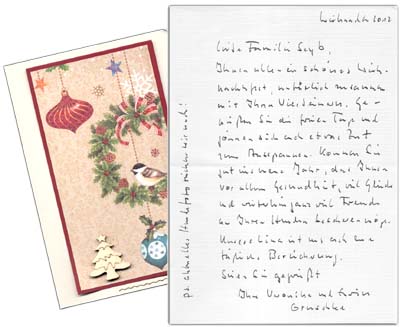 Weihnachten 2012
Liebe Familie Seyb,
Ihnen allen ein schönes Weih-
nachtsfest, natürlich zusammen
mit Ihren Vierbeinern. Ge-
nießen Sie die freien Tage und
gönnen sich auch etwas Zeit
zum Ausspannen. Kommen Sie
gut ins neue Jahr, das Ihnen
vor allem Gesundheit, viel Glück
und weiterhin ganz viel Freude
an Ihren Hunden bescheren möge.
Unsere ist uns auch eine
tägliche Bereicherung.
Seien Sie gegrüßt
Ihre Veronika und
P.S. aktuelles Hundefoto schicken wir noch!